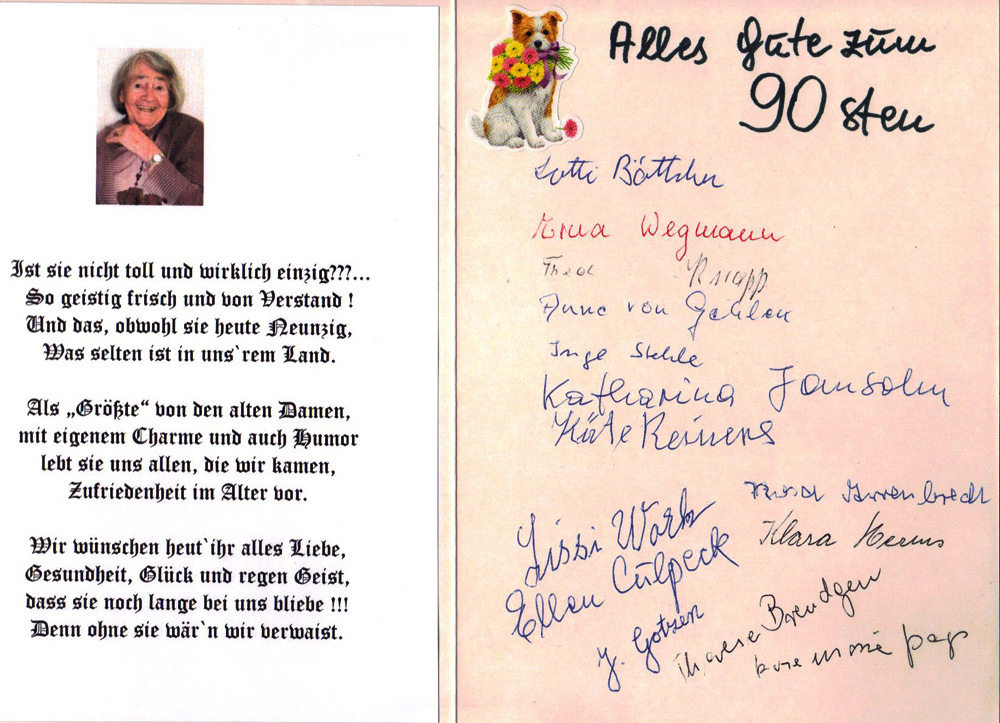 Ist sie nicht toll und wirklich einzig???...
So geistig frisch und von Verstand !
Und das, obwohl sie heute Neunzig,
Was selten ist in uns`rem Land.
Als „Größte“ von den alten Damen,
mit eigenem Charme und auch Humor
lebt sie uns allen, die wir kamen,
Zufriedenheit im Alter vor.
Wir wünschen heut`ihr alles Liebe,
Gesundheit, Glück und regen Geist,
dass sie noch lange bei uns bliebe !!!
Denn ohne sie wär`n wir verwaist.
Alles Gute zum
90 sten
Lotti Böttcher
Erna Wegmann
Knapp
Anne von
Inge Stehle
Katharina Jansohn
Käte Reiners
Rosa
Lissi
Klara
Ellen Culpeck
J. Gotzen
Therese Brendgen